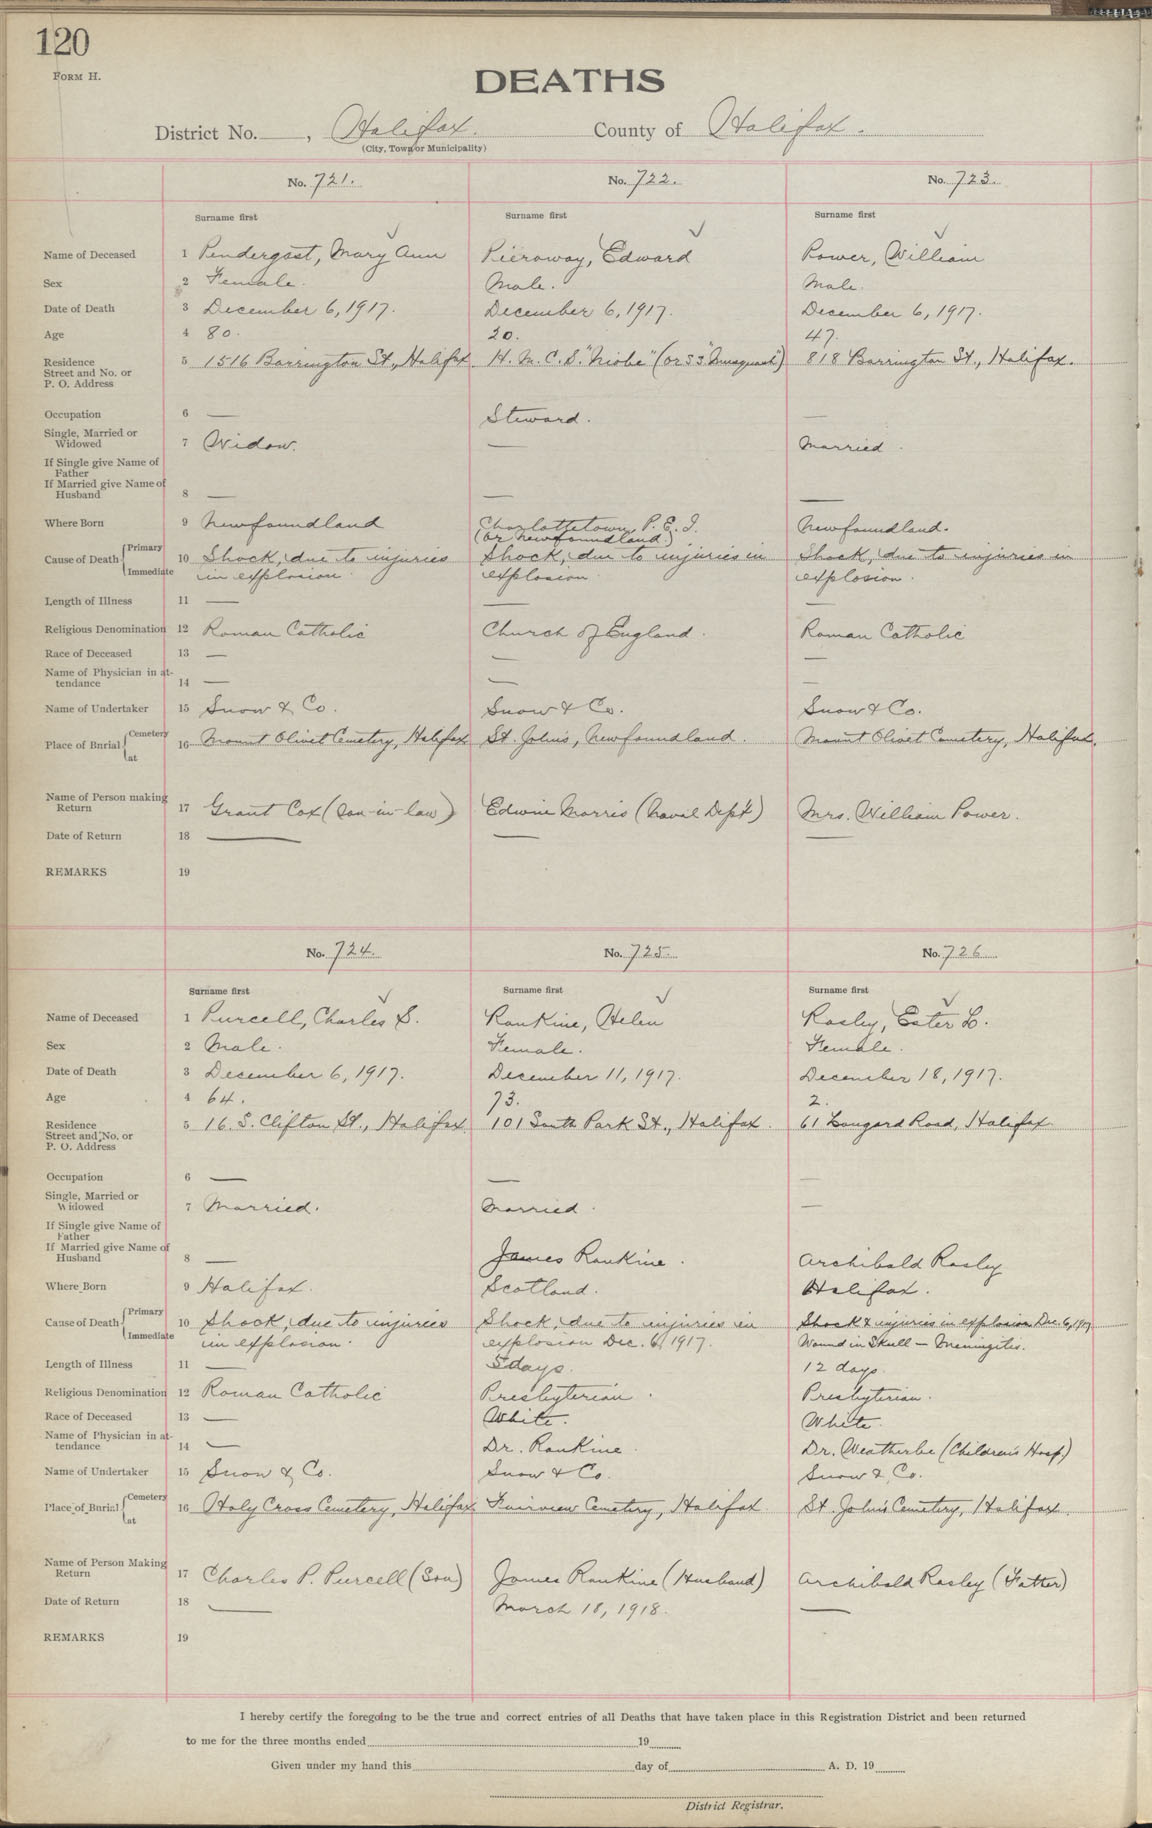 120
FORM H.
DEATHS
District No. , Halifax. County of Halifax.
(City, Town or Municipality)
No. 721. No. 722. No. 723.
Surname first Surname first Surname first
Name of Deceased 1 Pendergast, Mary Ann Pieroway, Edward Power, William
Sex 2 Female. Male. Male.
Date of Death 3 December 6, 1917. December 6, 1917. December 6, 1917.
Age 4 80. 20. 47.
Residence
Street and No. or
P. O. Address
5 1516 Barrington St., Halifax. H. M. C. S. "Niobe" (or SS "Musquash") 818 Barrington St., Halifax.
Occupation 6 — Steward. —
Single, Married or
Widowed
7 Widow. — Married.
If Single give Name of
Father
If Married give Name of
Husband
8 — — —
Where Born 9 Newfoundland Charlottetown, P. E. I. Newfoundland.
(or Newfoundland)
Cause of Death { Primary
Immediate
10 Shock, due to injuries Shock, due to injuries in Shock, due to injuries in
in explosion. explosion. explosion.
Length of Illness 11 — — —
Religious Denomination 12 Roman Catholic Church of England. Roman Catholic
Race of Deceased 13 — — —
Name of Physician in at-
tendance
14 — — —
Name of Undertaker 15 Snow & Co. Snow & Co. Snow & Co.
Place of Burial { Cemetery
at
16 Mount Olivet Cemetery, Halifax St. John's, Newfoundland. Mount Olivet Cemetery, Halifax.
Name of Person making
Return
17 Grant Cox (Son-in-law) Edwin Morris (Naval Dept) Mrs. William Power.
Date of Return 18 — — —
REMARKS 19
No. 724. No. 725. No. 726
Surname first Surname first Surname first
Name of Deceased 1 Purcell, Charles S. Rankine, Helen Rasley, Ester L.
Sex 2 Male. Female. Female.
Date of Death 3 December 6, 1917. December 11, 1917. December 18, 1917.
Age 4 64. 73. 2.
Residence
Street and No. or
P. O. Address
5 16. S. Clifton St., Halifax. 101 South Park St., Halifax. 61 Longard Road, Halifax.
Occupation 6 — — —
Single, Married or
Widowed
7 Married. Married. —
If Single give Name of
Father
If Married give Name of
Husband
8 — James Rankine. Archibald Rasley
Where Born 9 Halifax. Scotland. Halifax.
Cause of Death { Primary
Immediate
10 Shock, due to injuries Shock, due to injuries in Shock & injuries in explosion Dec. 6, 1917
in explosion. explosion Dec. 6, 1917. Wound in Skull — Meningitis.
Length of Illness 11 — 5 days. 12 days
Religious Denomination 12 Roman Catholic Presbyterian. Presbyterian.
Race of Deceased 13 — White. White.
Name of Physician in at-
tendance
14 — Dr. Rankine. Dr. Weatherbe (Children's Hosp.)
Name of Undertaker 15 Snow & Co. Snow & Co. Snow & Co.
Place of Burial { Cemetery
at
16 Holy Cross Cemetery, Halifax. Fairview Cemetery, Halifax. St. John's Cemetery, Halifax.
Name of Person Making
Return
17 Charles P. Purcell (Son) James Rankine (Husband) Archibald Rasley (Father)
Date of Return 18 — March 18, 1918. —
REMARKS 19
I hereby certify the foregoing to be the true and correct entries of all Deaths that have taken place in this Registration District and been returned
to me for the three months ended 19
Given under my hand this day of A. D. 19
District Registrar.